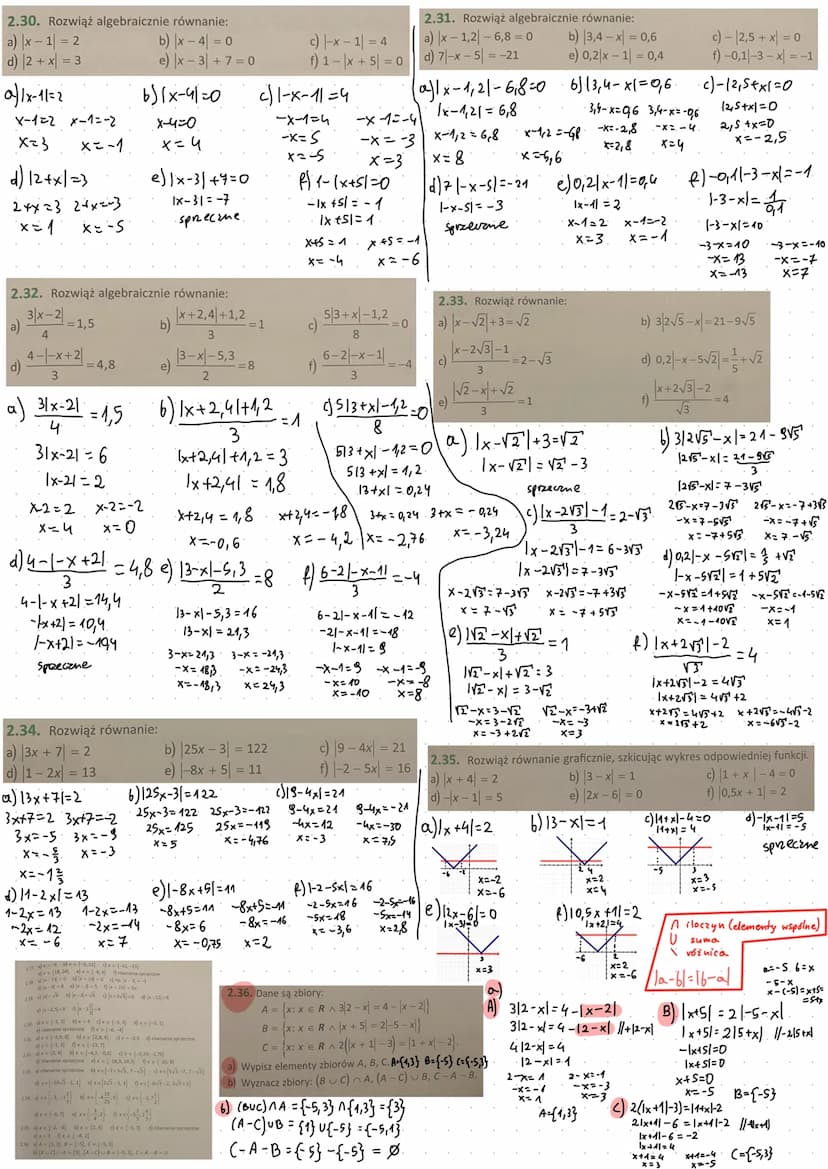 2.30. Rozwiąż algebraicznie równanie:
a) |x − 1| = 2 b) |x − 4| = 0 c) |−x − 1| = 4
d) |2 + x| = 3 e) |x − 3| + 7 = 0 f) 1 − |x + 5| = 0
a) |x-1|=2
x-1=2 x-1=-2
x=3 x=-1
b) |x-4|=0
x-4=0
x=4
c) |-x-1|=4
-x-1=4 -x-1=-4
-x=5 -x=-3
x=-5 x=3
d) |2+x|=3
2+x=3 2+x=-3
x=1 x=-5
e) |x-3|+7=0
|x-3|=-7
sprzeczne
f) 1-|x+5|=0
-|x+5|=-1
|x+5|=1
x+5=1 x+5=-1
x=-4 x=-6
2.31. Rozwiąż algebraicznie równanie:
a) |x − 1,2| − 6,8 = 0 b) |3,4 − x| = 0,6 c) − |2,5 + x| = 0
d) 7|−x − 5| = −21 e) 0,2|x − 1| = 0,4 f) −0,1|−3 − x| = −1
a) |x-1,2|-6,8=0
|x-1,2|=6,8
x-1,2=6,8 x-1,2=-6,8
x=8 x=-5,6
b) |3,4-x|=0,6
3,4-x=0,6 3,4-x=-0,6
-x=-2,8 -x=-4
x=2,8 x=4
c) -|2,5+x|=0
|2,5+x|=0
2,5+x=0
x=-2,5
d) 7|-x-5|=-21
|-x-5|=-3
sprzeczne
e) 0,2|x-1|=0,4
|x-1|=2
x-1=2 x-1=-2
x=3 x=-1
f) -0,1|-3-x|=-1
|-3-x|=1/0,1
|-3-x|=10
-3-x=10 -3-x=-10
-x=13 -x=-7
x=-13 x=7
2.32. Rozwiąż algebraicznie równanie:
a) 3|x−2|/4 = 1,5 b) |x+2,4|+1,2/3 = 1 c) 5|3+x|−1,2/8 = 0
d) 4−|−x+2|/3 = 4,8 e) |3−x|−5,3/2 = 8 f) 6−2|−x−1|/3 = −4
a) 3|x-2|/4 = 1,5
3|x-2|=6
|x-2|=2
x-2=2 x-2=-2
x=4 x=0
b) |x+2,4|+1,2/3 = 1
|x+2,4|+1,2=3
|x+2,4|=1,8
x+2,4=1,8 x+2,4=-1,8
x=-0,6 x=-4,2
c) 5|3+x|-1,2/8 = 0
5|3+x|-1,2=0
5|3+x|=1,2
|3+x|=0,24
3+x=0,24 3+x=-0,24
x=-2,76 x=-3,24
d) 4-|-x+2|/3 = 4,8
4-|-x+2|=14,4
-|x+2|=10,4
|-x+2|=-10,4
sprzeczne
e) |3-x|-5,3/2 = 8
|3-x|-5,3=16
|3-x|=21,3
3-x=21,3 3-x=-21,3
-x=18,3 -x=-24,3
x=-18,3 x=24,3
f) 6-2|-x-1|/3 = -4
6-2|-x-1|=-12
-2|-x-1|=-18
|-x-1|=9
-x-1=9 -x-1=-9
-x=10 -x=-8
x=-10 x=8
2.33. Rozwiąż równanie:
a) |x−√2|+3=√2 b) 3|2√5−x|=21−9√5
c) |x−2√3|−1/3 = 2−√3 d) 0,2|−x−5√2| = 1/5+√2
e) |√2−x|+√2/3 = 1 f) |x+2√3|−2/√3 = 4
a) |x-√2|+3=√2
|x-√2|=√2-3
sprzeczne
b) 3|2√5-x|=21-9√5
|2√5-x|=21-9√5/3
|2√5-x|=7-3√5
2√5-x=7-3√5 2√5-x=-7+3√5
-x=7-5√5 -x=-7+√5
x=-7+5√5 x=7-√5
c) |x-2√3|-1/3 = 2-√3
|x-2√3|-1=6-3√3
|x-2√3|=7-3√3
x-2√3=7-3√3 x-2√3=-7+3√3
x=7-√3 x=-7+5√3
d) 0,2|-x-5√2|=1/5+√2
|-x-5√2|=1+5√2
-x-5√2=1+5√2 -x-5√2=-1-5√2
-x=1+10√2 -x=-1
x=-1-10√2 x=1
e) |√2-x|+√2/3 = 1
|√2-x|+√2=3
|√2-x|=3-√2
√2-x=3-√2 √2-x=-3+√2
-x=3-2√2 -x=-3
x=-3+2√2 x=3
f) |x+2√3|-2/√3 = 4
|x+2√3|-2=4√3
|x+2√3|=4√3+2
x+2√3=4√3+2 x+2√3=-4√3-2
x=2√3+2 x=-6√3-2
2.34. Rozwiąż równanie:
a) |3x + 7| = 2 b) |25x − 3| = 122 c) |9 − 4x| = 21
d) |1 − 2x| = 13 e) |−8x + 5| = 11 f) |−2 − 5x| = 16
a) |3x+7|=2
3x+7=2 3x+7=-2
3x=-5 3x=-9
x=-5/3 x=-3
x=-1 2/3
b) |25x-3|=122
25x-3=122 25x-3=-122
25x=125 25x=-119
x=5 x=-4,76
c) |9-4x|=21
9-4x=21 9-4x=-21
-4x=12 -4x=-30
x=-3 x=7,5
d) |1-2x|=13
1-2x=13 1-2x=-13
-2x=12 -2x=-14
x=-6 x=7
e) |-8x+5|=11
-8x+5=11 -8x+5=-11
-8x=6 -8x=-16
x=-0,75 x=2
f) |-2-5x|=16
-2-5x=16 -2-5x=-16
-5x=18 -5x=-14
x=-3,6 x=2,8
2.35. Rozwiąż równanie graficznie, szkicując wykres odpowiedniej funkcji.
a) |x + 4| = 2 b) |3 − x| = 1 c) |1 + x | − 4 = 0
d) −|x − 1| = 5 e) |2x − 6| = 0 f) |0,5x + 1| = 2
a) |x+4|=2
-6 -2
x=-2
x=-6
b) |3-x|=1
2 4
x=2
x=4
c) |1+x|-4=0
|1+x|=4
-5 3
x=3
x=-5
d) -|x-1|=5
|x-1|=-5
sprzeczne
e) |2x-6|=0
|x-3|=0
3
x=3
f) |0,5x+1|=2
|x+2|=4
-6 2
x=2
x=-6
∩ iloczyn (elementy wspólne)
∪ suma
\ różnica
|a-b|=|b-a|
a=-5 b=x
-5-x
x-(-5)=x+5=
2.36. Dane są zbiory:
A = {x: x ∈ R ∧ 3|2 − x| = 4 − |x − 2|}
B = {x: x ∈ R ∧ |x + 5| = 2|−5 − x|}
C = {x: x ∈ R ∧ 2(|x + 1| − 3) = |1 + x| − 2}.
a) Wypisz elementy zbiorów A, B, C. A={1,3} B={-5} C={-5,3}
b) Wyznacz zbiory: (B ∪ C) ∩ A, (A − C) ∪ B, C − A − B.
b) (B∪C)∩A={-5,3}∩{1,3}={3}
(A-C)∪B={1}∪{-5}={-5,1}
C-A-B={-5}-{-5}=∅
a)
A) 3|2-x|=4-|x-2|
3|2-x|=4-|2-x| //+|2-x|
4|2-x|=4
|2-x|=1
2-x=1 2-x=-1
-x=-1 -x=-3
x=1 x=3
A={1,3}
B) |x+5|=2|-5-x|
|x+5|=2|5+x| //-2|5+x|
-|x+5|=0
|x+5|=0
x+5=0
x=-5
B={-5}
C) 2(|x+1|-3)=|1+x|-2
2|x+1|-6=|x+1|-2 //-|x+1|
|x+1|-6=-2
|x+1|=4
x+1=4 x+1=-4
x=3 x=-5
C={-5,3}